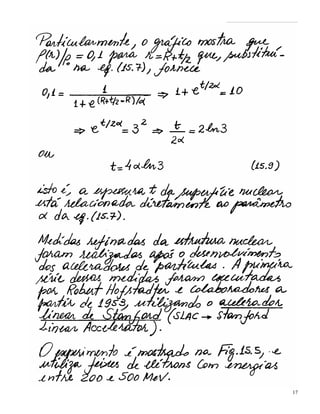 Particularmente, o gráfico mostra que
ρ(r)/ρ₀ = 0,1 para r = R + t/2 que, substituí-
da na eq. (15.7), fornece
0,1 = 1/(1 + e^{(R+t/2-R)/α}) ⇒ 1 + e^{t/2α} = 10
⇒ e^{t/2α} = 3² ⇒ t/2α = 2 ln 3
ou
t = 4α ln 3 (15.9)
isto é, a espessura t da superfície nuclear
está relacionada diretamente ao parâmetro
α da eq. (15.7).
Medidas refinadas da estrutura nuclear
foram realizadas após o desenvolvimento
dos aceleradores de partículas. A primeira
série dessas medidas foram executadas
por Robert Hofstadter e colaboradores a
partir de 1953, utilizando o acelerador
linear de Stanford (SLAC → Stanford
Linear Accelerator).
O experimento é mostrado na Fig. 15.5, e
utiliza feixes de elétrons com energias
entre 200 e 500 MeV.
17